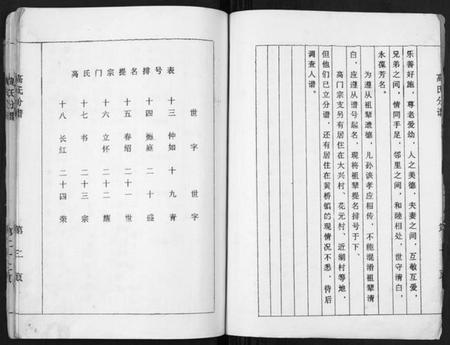 高氏分谱
乐善好施，尊老爱幼，人之美德，夫妻之间，互敬互爱，
兄弟之间，情同手足，邻里之间，和睦相处，世守清白，
永葆芳名。
为遵从祖辈遗德，儿孙该孝应相传，不能混淆祖辈清
白，应遵从谱号起名，现将祖辈提名排号于下。
高门宗支另有居住在大兴村、花元村、近湖村等地，
但他们已立分谱，还有居住在黄桥镇的现情况不悉，待后
调查入谱。
高氏门宗提名排号表
世字 世字
十三 仲如 十九 青
十四 二十 盛
十五 春绍 二十一 世
十六 立怀 二十二
十七 书 二十三 宗
十八 长红 二十四 荣
高氏分谱